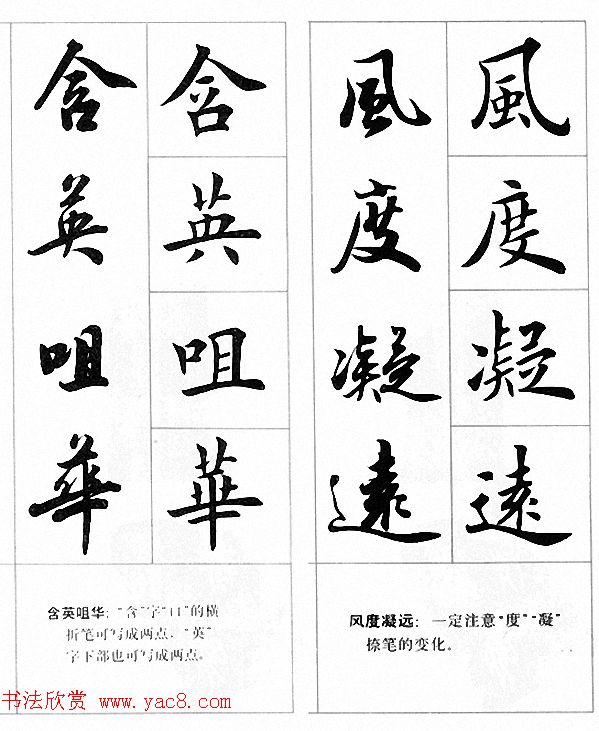 風度凝遠
風度凝遠
含英咀華
含英咀華
风度凝远：一定注意“度”“凝”
捺笔的变化。
含英咀华：“含”字“口”的横
折笔可写成两点，“英”
字下部也可写成两点。
书法欣赏 www.yac8.com